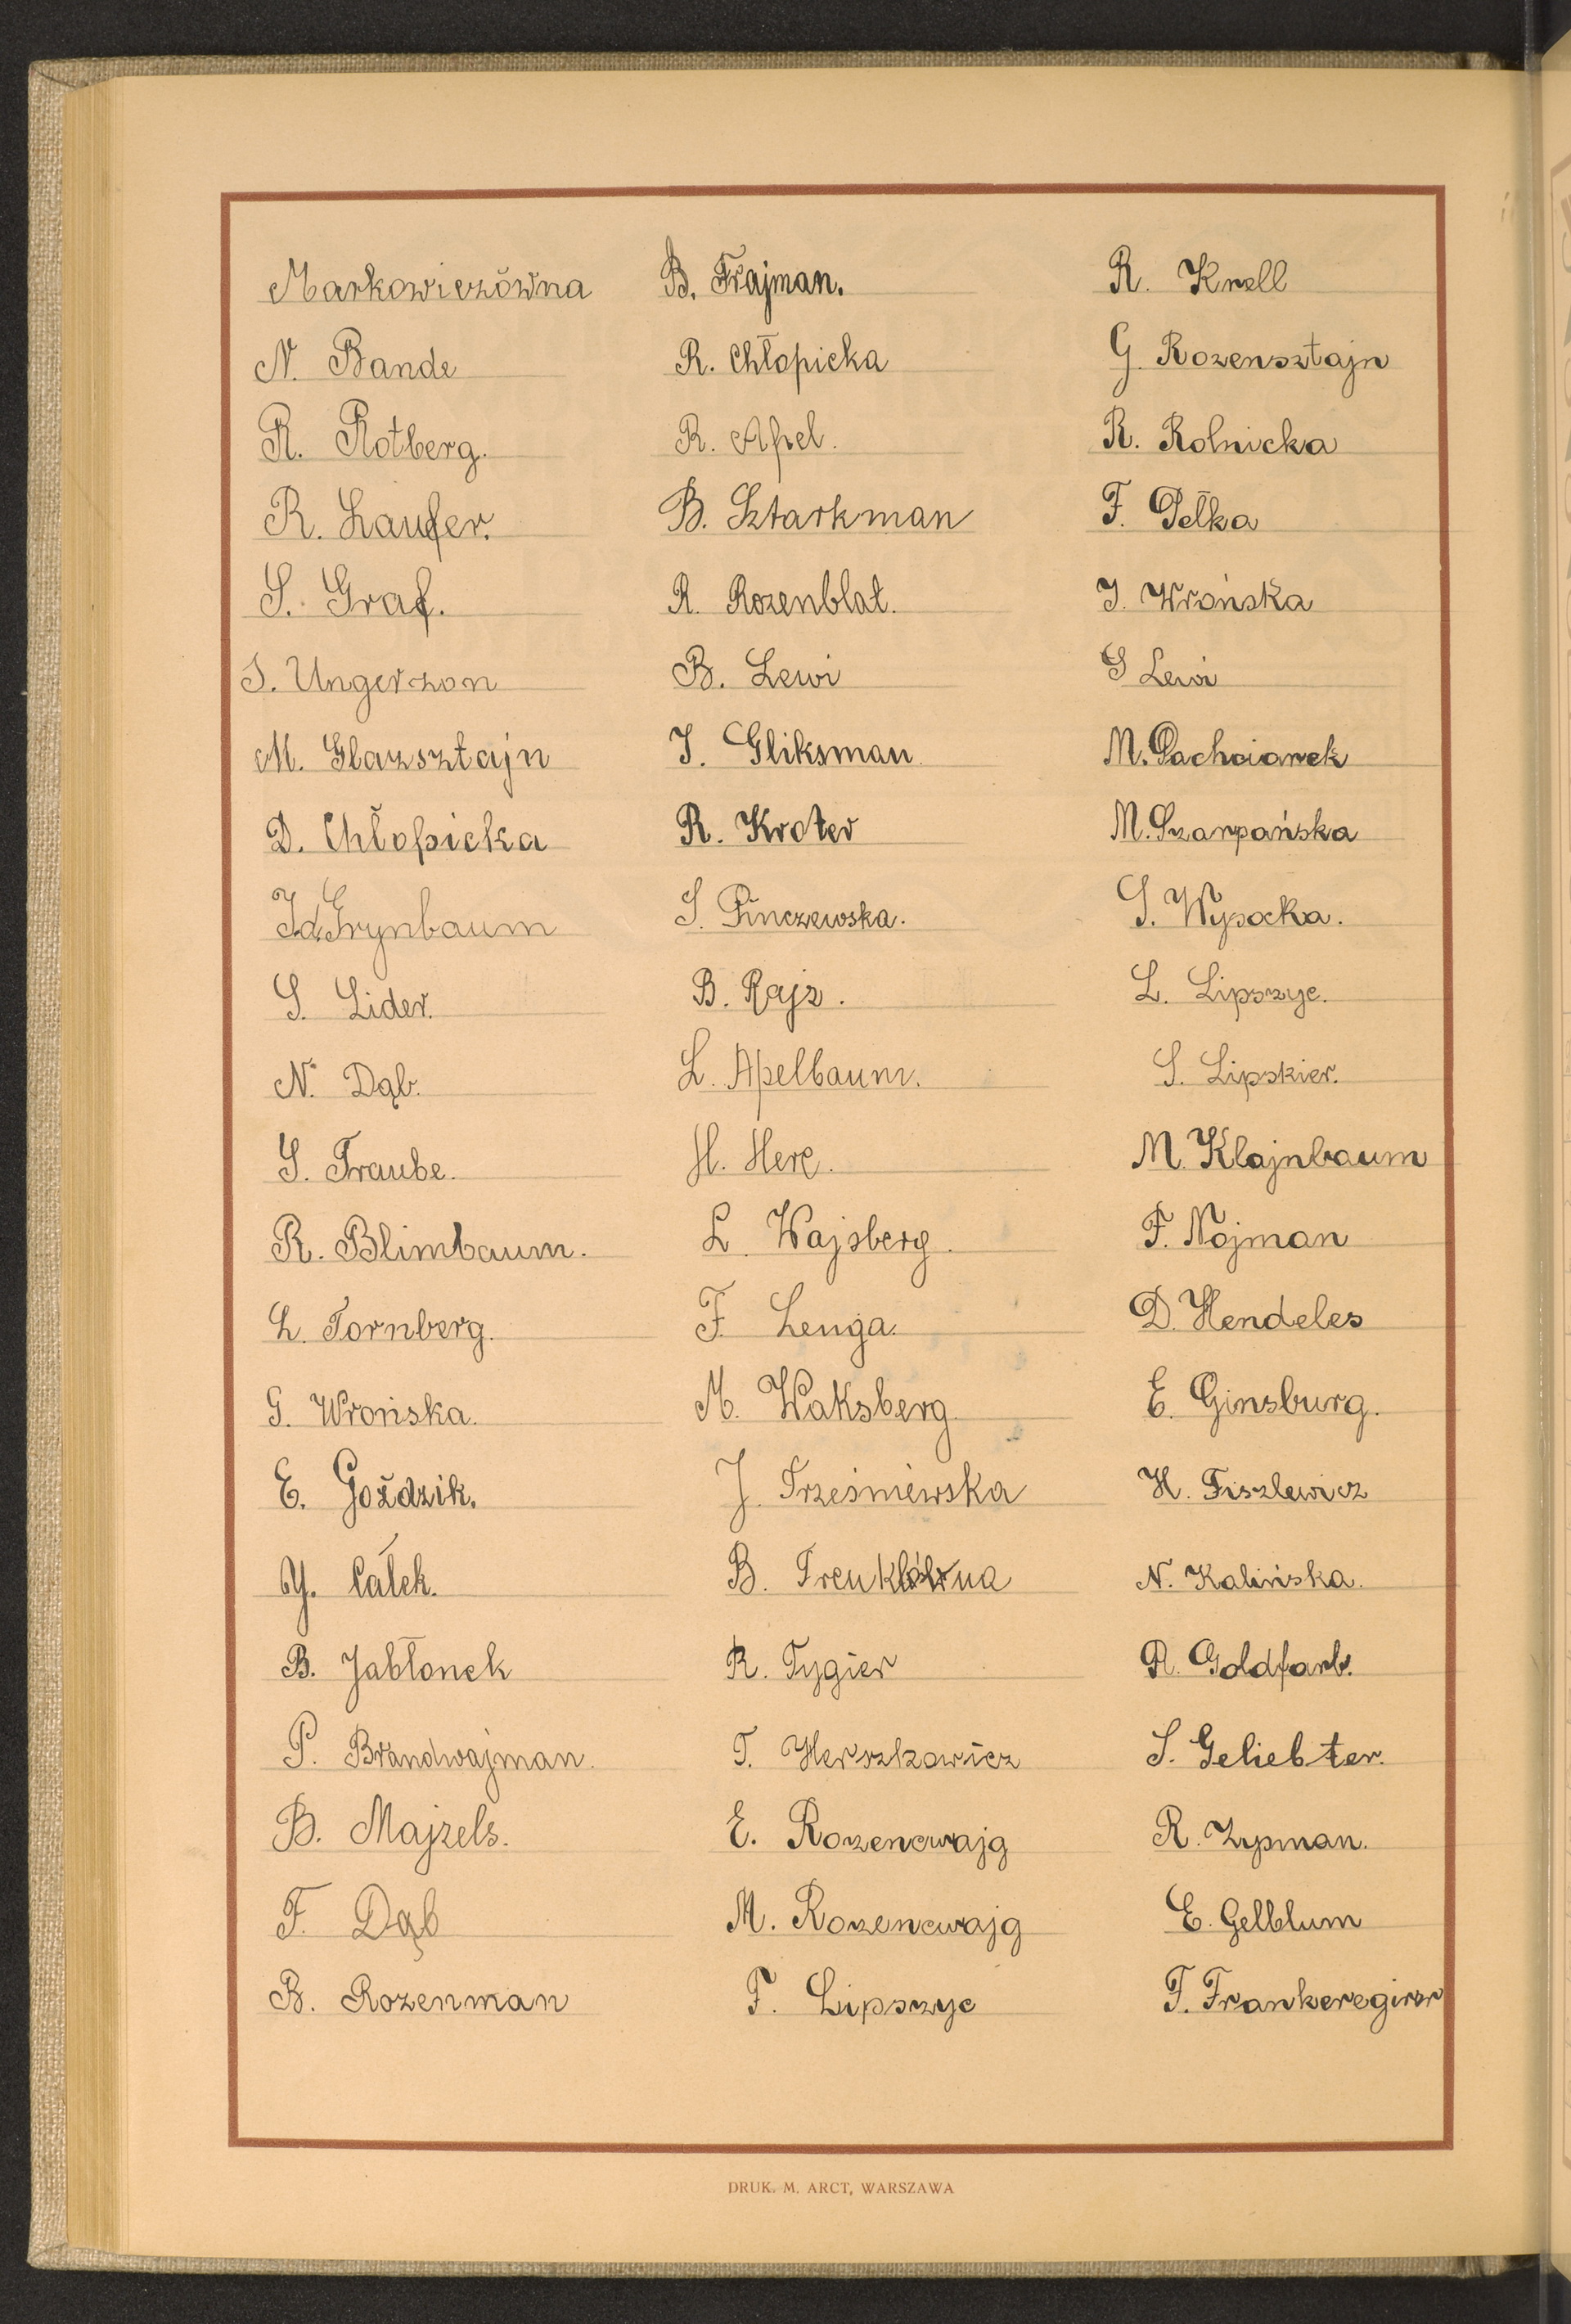 Markowiczówna
N. Bande
R. Rotberg.
R. Laufer.
S. Graf.
S. Ungerzon
M. Glazsztajn
D. Chłopicka
Id. Grynbaum
S. Lider.
N. Dąb.
S. Traube.
R. Blimbaum.
L. Tornberg.
G. Wrońska.
E. Goździk.
Y. Całek.
B. Jabłonek
P. Brandwajman.
B. Majzels.
F. Dąb
B. Rozenman
B. Frajman.
R. Chłopicka
R. Apel.
B. Sztarkman
R. Rozenblat.
B. Lewi
I. Gliksman
R. Kroter
S. Pinczewska.
B. Rajz.
L. Apelbaum.
H. Herc.
L. Wajsberg.
F. Lenga.
M. Waksberg.
J. Trześniewska
B. Trenklówna
R. Tygier
T. Herszkowicz
E. Rozencwajg
M. Rozencwajg
F. Lipszyc
R. Krell
G. Rozensztajn
R. Rolnicka
F. Pełka
I. Wrońska
S Lewi
M. Pachciarek
M. Szarpańska
S. Wysocka.
L. Lipszyc.
S. Lipskier.
M. Klajnbaum
F. Nojman
D. Hendeles
E. Ginsburg.
H. Fiszlewicz
N. Kalińska.
R. Goldfarb.
S. Geliebter.
R. Zypman.
E. Gelblum
T. Frankeregirer
DRUK. M. ARCT, WARSZAWA